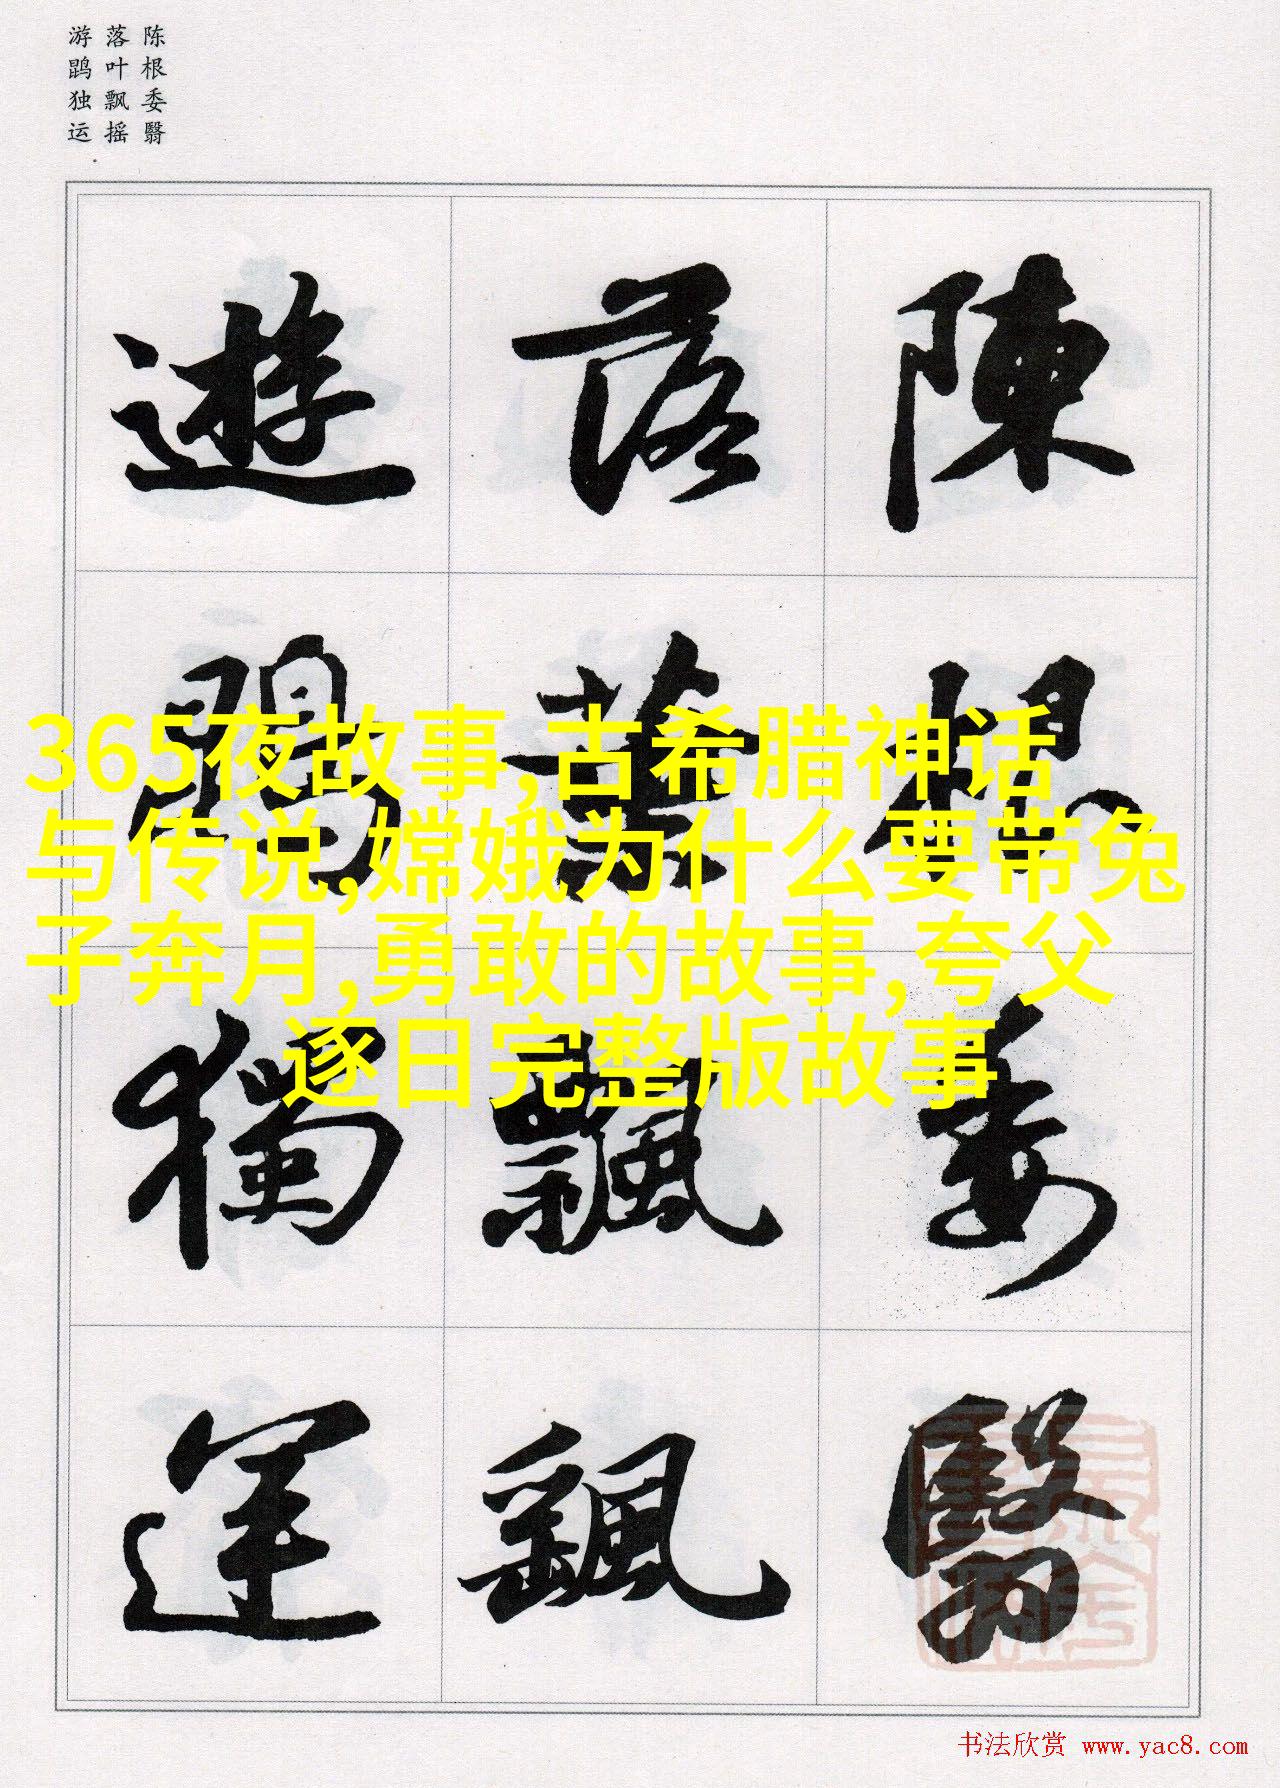 陈根委翳
落叶飘摇
游鹍独运
陳根委翳
落葉飄颻
遊獨運
365夜故事,古希腊神话
与传说,嫦娥为什么要带兔
子奔月,勇敢的故事,夸父
逐日完整版故事
书法欣赏 www.yac8.com